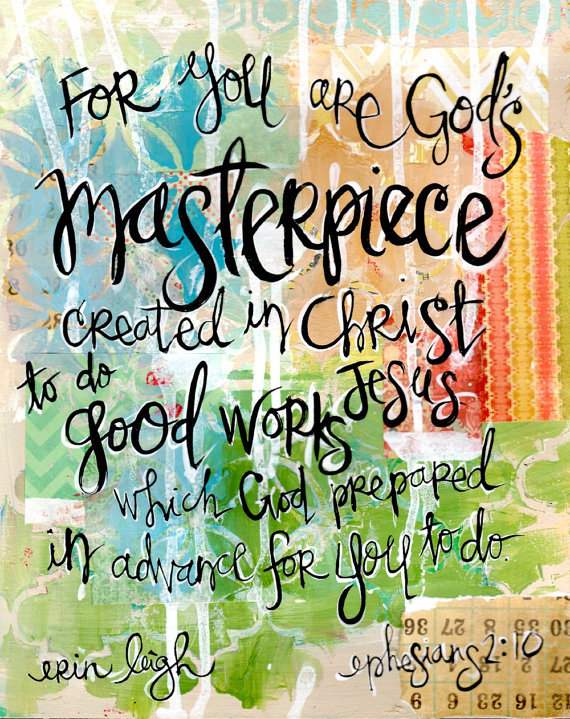 FOR YOU are GOD's
masterpiece
created in Christ
Jesus
to do
good works
which God prepared
in advance for you to do.
erin leigh
ephesians 2:10